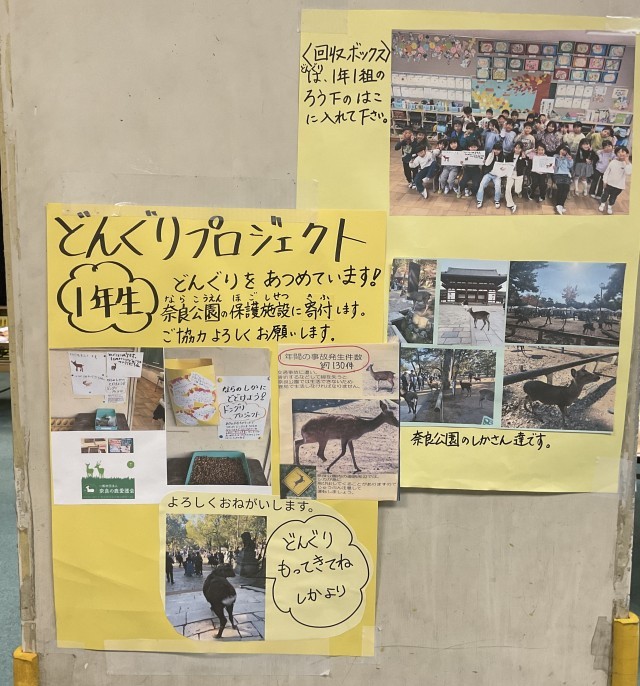 〈回収ボックス〉
どんぐり
は、1年1組の
ろう下のはこ
に入れて下さい。
どんぐりプロジェクト
1年生
どんぐりをあつめています!
ならこうえん ほごしせつ きふ
奈良公園の保護施設に寄付します。
ご協力よろしくお願いします。
年間の事故発生件数
約130件
ならのしかに
とどけよう!
ドングリ
プロジェクト
奈良の鹿愛護会
奈良公園のしかさん達です。
よろしくおねがいします。
どんぐり
もってきてね
しかより